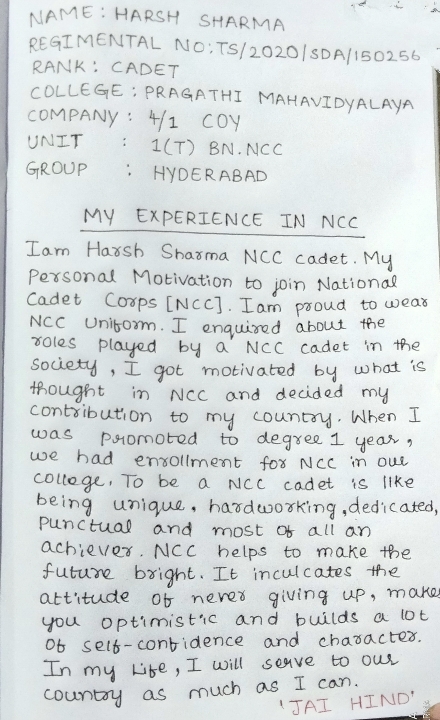 NAME: HARSH SHARMA
REGIMENTAL NO:TS/2020/SDA/150256
RANK: CADET
COLLEGE: PRAGATHI MAHAVIDYALAYA
COMPANY: 4/1 COY
UNIT : 1(T) BN.NCC
GROUP : HYDERABAD
MY EXPERIENCE IN NCC
Iam Harsh Sharma NCC cadet. My
Personal Motivation to join National
Cadet Corps [NCC]. Iam proud to wear
NCC Uniform. I enquired about the
roles played by a NCC cadet in the
society, I got motivated by what is
thought in NCC and decided my
contribution to my country. When I
was promoted to degree 1 year,
we had enrollment for NCC in our
college. To be a NCC cadet is like
being unique, hardworking, dedicated,
Punctual and most of all an
achiever. NCC helps to make the
future bright. It inculcates the
attitude of never giving up, makes
you optimistic and builds a lot
of self-confidence and character.
In my Life, I will serve to our
country as much as I can.
'JAI HIND'